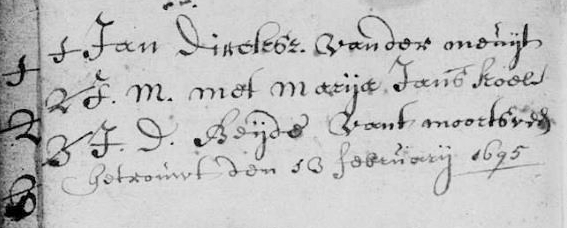 1 1 Jan Dircksz. vander meuijt
2 J. M. met Marija Jans Koel
2 3 J. D. Beijde vant moortsveen
3 Getrouwt den 13 februarij 1695